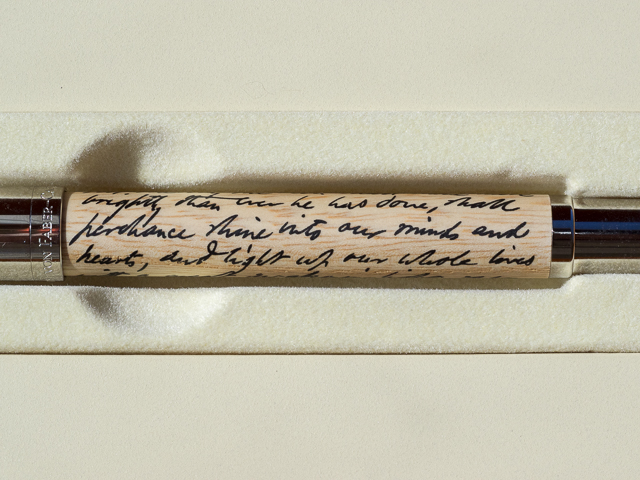 VON FABER-C
brightly than ever he has done, shall
perchance shine into our minds and
hearts, and light up our whole lives